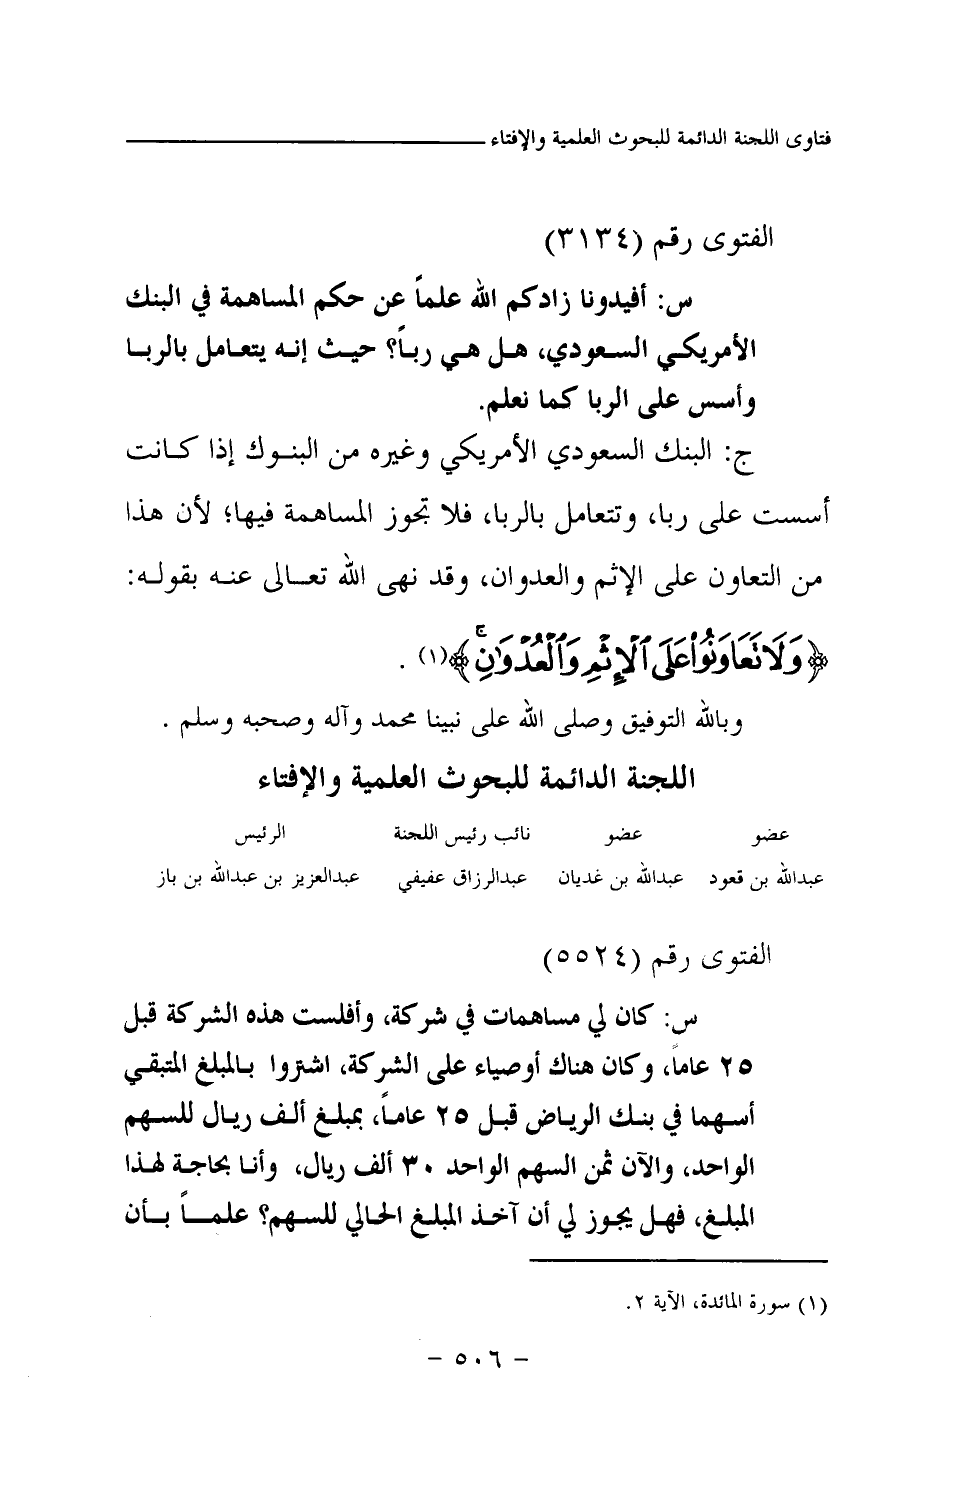 فتاوى اللجنة الدائمة للبحوث العلمية والإفتاء
الفتوى رقم (٣١٣٤)
س: أفيدونا زادكم الله علماً عن حكم المساهمة في البنك
الأمريكي السعودي، هل هي رباً؟ حيث إنه يتعامل بالربا
وأسس على الربا كما نعلم.
ج: البنك السعودي الأمريكي وغيره من البنوك إذا كانت
أسست على ربا، وتتعامل بالربا، فلا تجوز المساهمة فيها؛ لأن هذا
من التعاون على الإثم والعدوان، وقد نهى الله تعالى عنه بقوله:
﴿وَلَا تَعَاوَنُوا۟ عَلَى ٱلْإِثْمِ وَٱلْعُدْوَٰنِ ۚ﴾(١) .
وبالله التوفيق وصلى الله على نبينا محمد وآله وصحبه وسلم .
اللجنة الدائمة للبحوث العلمية والإفتاء
عضو عضو نائب رئيس اللجنة الرئيس
عبدالله بن قعود عبدالله بن غديان عبدالرزاق عفيفي عبدالعزيز بن عبدالله بن باز
الفتوى رقم (٥٥٢٤)
س: كان لي مساهمات في شركة، وأفلست هذه الشركة قبل
٢٥ عاماً، وكان هناك أوصياء على الشركة، اشتروا بالمبلغ المتبقي
أسهما في بنك الرياض قبل ٢٥ عاماً، بمبلغ ألف ريال للسهم
الواحد، والآن ثمن السهم الواحد ٣٠ ألف ريال، وأنا بحاجة لهذا
المبلغ، فهل يجوز لي أن آخذ المبلغ الحالي للسهم؟ علماً بأن
(١) سورة المائدة، الآية ٢.
- ٥٠٦ -